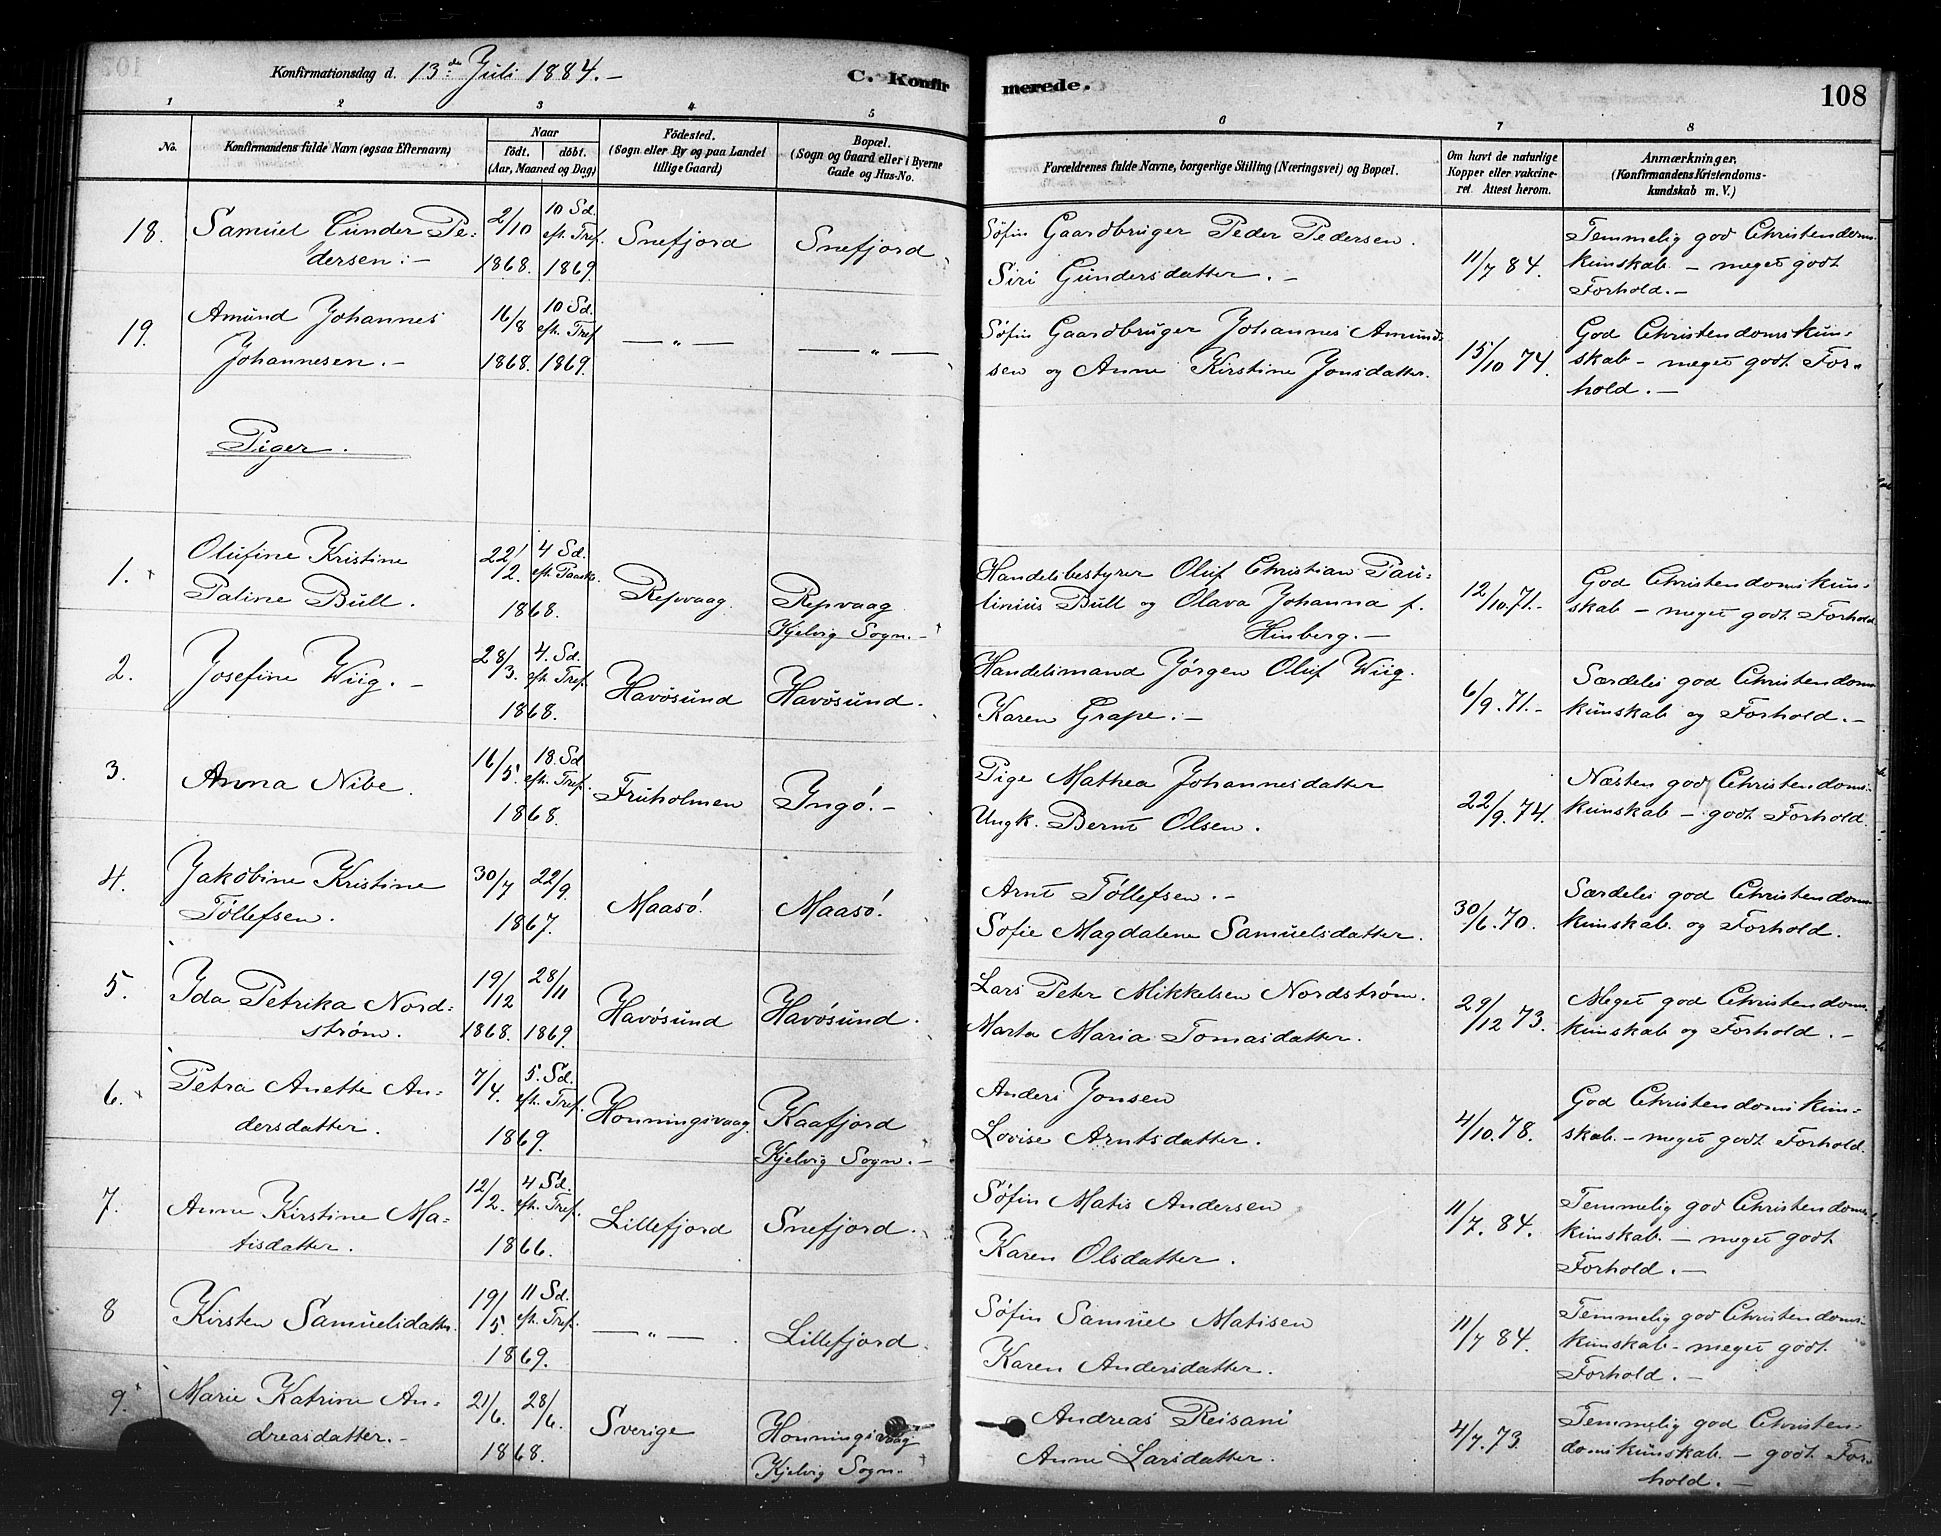 Konfirmationsdag d. 13de Juli 1884. –
C. Konfirmerede.
108
1 2 3 4 5 6 7 8
No.
Konfirmandens fulde Navn (ogsaa Efternavn)
Naar
födt. döbt.
(Aar, Maaned og Dag)
Födested.
(Sogn eller By og paa Landet
tillige Gaard)
Bopæl.
(Sogn og Gaard eller i Byerne
Gade og Hus-No.
Forældrenes fulde Navne, borgerlige Stilling (Næringsvei) og Bopæl.
Om havt de naturlige
Kopper eller vakcine-
ret. Attest herom.
Anmærkninger.
(Konfirmandens Kristendoms-
kundskab m. V.)
18. Samuel Gunder Pe-
dersen. –
2/10 1868.
10 Sd. eft. Tref. 1869.
Snefjord
Snefjord
Søfin Gaardbruger Peder Pedersen.
Siri Gundersdatter. –
11/7 84.
Temmelig god Christendoms-
kunskab. – meget godt
Forhold. –
19. Amund Johannes
Johannesen. –
16/8 1868.
10 Sd. eft. Tref 1869.
— „ —
— „ —
Søfin Gaardbruger Johannes Amund-
sen og Anne Kirstine Jonsdatter.
15/10 74.
God Christendomskun-
skab – meget godt For-
hold. –
Piger.
1. Olufine Kristine
Paline Bull.
22/12. 4 Sd. eft. Paaske
1868.
Repvaag.
Repvaag
Kjelvig Sogn. –
Handelsbestyrer Oluf Christian Pau-
linius Bull og Olava Johanna f.
Hinberg. –
12/10. 71. –
God Christendomskun-
skab – meget godt Forhold
2. Josefine Wiig. –
28/3. 4. Sd. eft. Tref.
1868.
Havösund
Havösund.
Handelsmand Jørgen Oluf Wiig.
Karen Grape. –
6/9. 71. –
Særdeles god Christendoms-
kunskab og Forhold. –
3. Anna Nibe.
16/5. 18. Sd eft. Tref.
1868.
Fruholmen
Ingö. –
Pige Mathea Johannesdatter
Ungk. Bernt Olsen.
22/9. 74.
Næsten god Christendoms-
kunskab – godt Forhold.
4. Jakobine Kristine
Töllefsen.
30/7 22/9.
1867.
Maasö.
Maasö.
Arnt Töllefsen. –
Sofie Magdalene Samuelsdatter.
30/6. 70.
Særdeles god Christendoms-
kunskab. og Forhold.
5. Ida Petrika Nord-
strøm.
19/12 28/11
1868. 1869.
Havösund
Havösund.
Lars Peter Mikkelsen Nordstrøm.
Marta Maria Tomasdatter.
29/12 73.
Meget god Christendoms-
kunskab og Forhold. –
6. Petra Anette An-
dersdatter.
7/4. 5. Sd. eft. Tref.
1869.
Honningsvaag.
Kaafjord
Kjelvig Sogn. –
Anders Jonsen
Lovise Arntsdatter.
4/10. 78.
God Christendomskun-
skab. – meget godt Forhold.
7. Anne Kirstine Ma-
tisdatter.
12/2. 4 Sd. eft. Tref.
1866.
Lillefjord
Snefjord.
Søfin Matis Andersen
Karen Olsdatter.
11/7. 84.
Temmelig god Christendoms-
kunskab. – meget godt
Forhold. –
8 Kirsten Samuelsdatter.
19/5. 11 Sd. eft. Tref.
1869.
— „ —
Lillefjord.
Søfin Samuel Matisen
Karen Andersdatter.
11/7 84.
Temmelig god Christendoms-
kunskab – meget godt
Forhold.
9. Marie Katrine An-
dreasdatter. –
21/6. 28/6.
1868.
Sverige
Honningsvaag
Kjelvig Sogn. –
Andreas Reisani
Anne Larsdatter.
4/7. 73.
Temmelig god Christen-
domskunskab – godt For-
hold. –